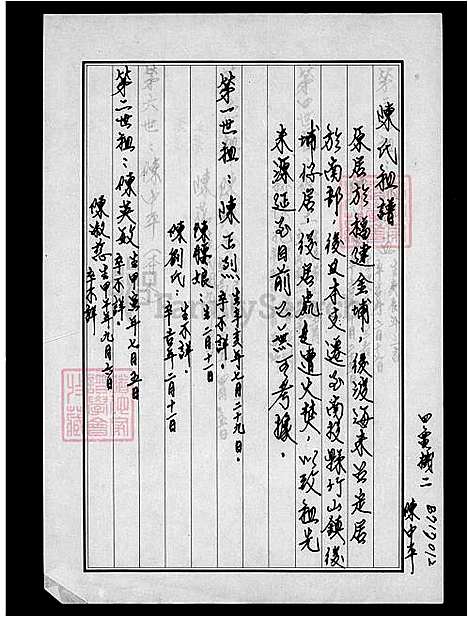 四電機二
B717012
陳中平
陳氏祖譜
原居於福建金埔，後渡海來台定居
於南部，後又本支遷至南投縣竹山鎮後
埔仔居，後居處遭火焚，以致祖先
來源延至目前已無可考據。
第一世祖：陳正烈 生辛亥年七月二十九日。
卒不詳。
陳 娘 生 二月十一日
陳劉氏：生不詳。
卒 年二月十一日
第二世祖：陳英敏 生甲 年七月五日
卒不詳。
陳淑 生甲 年九月六日
卒不詳